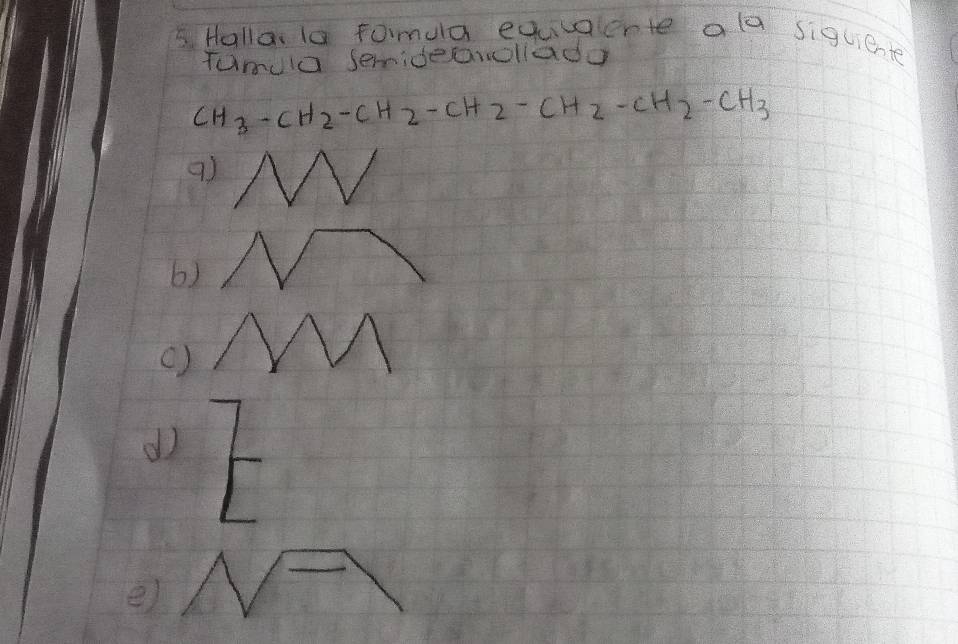 5. Hallar la formula equivalente a la siguiente
formula semidesarrollado
CH3-CH2-CH2-CH2-CH2-CH2-CH3
a)
b)
c)
d)
e)